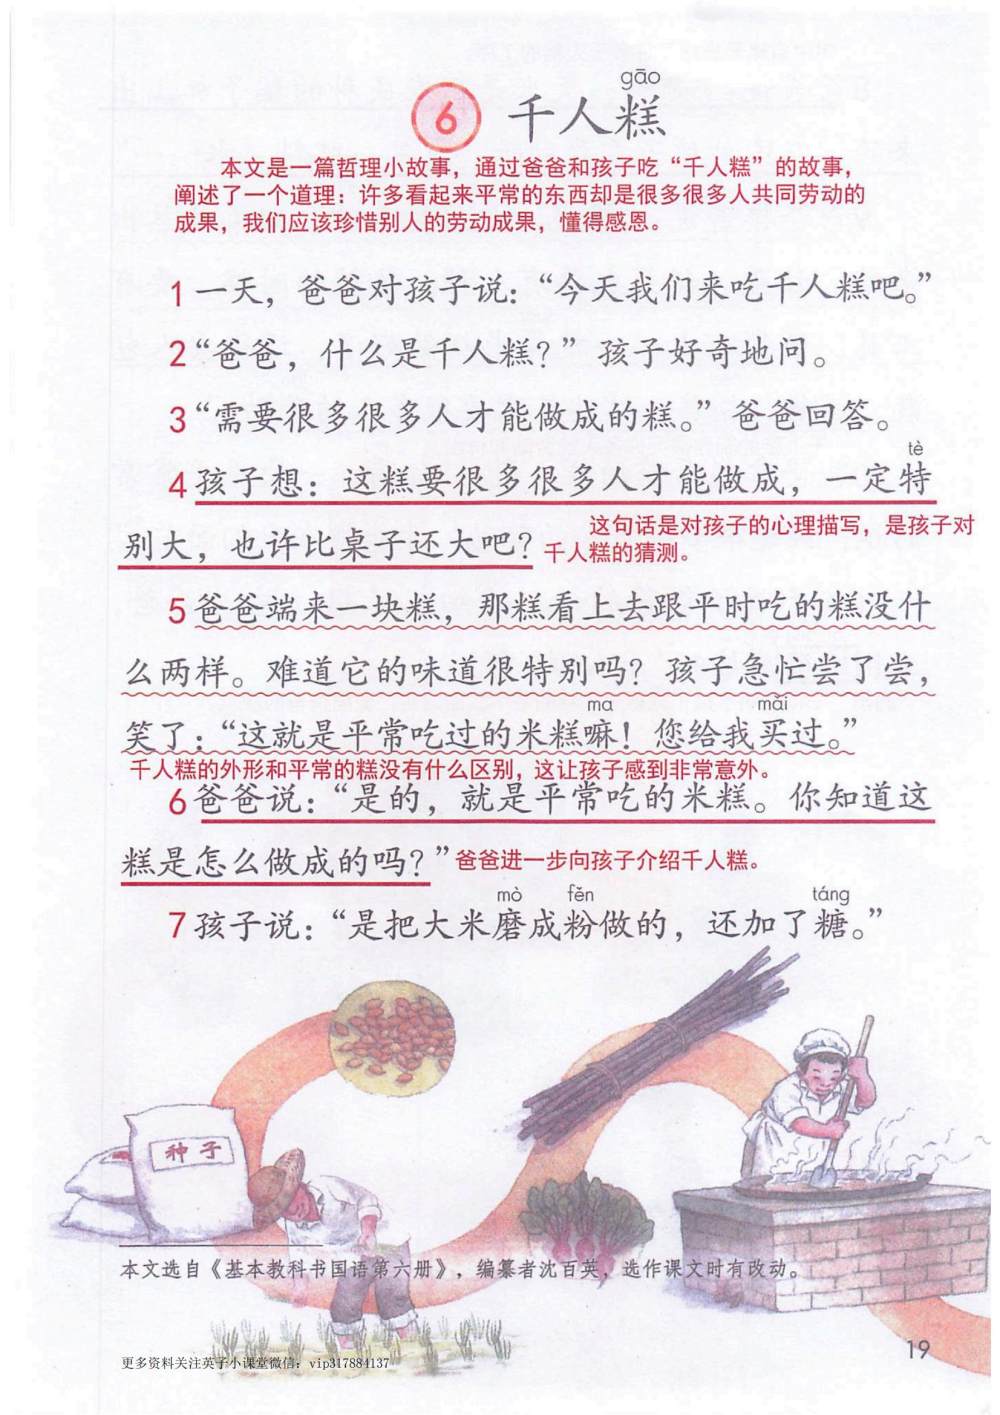 gāo
6 千人糕
本文是一篇哲理小故事，通过爸爸和孩子吃“千人糕”的故事，
阐述了一个道理：许多看起来平常的东西却是很多很多人共同劳动的
成果，我们应该珍惜别人的劳动成果，懂得感恩。
1 一天，爸爸对孩子说：“今天我们来吃千人糕吧。”
2 “爸爸，什么是千人糕？”孩子好奇地问。
3 “需要很多很多人才能做成的糕。”爸爸回答。
tè
4 孩子想：这糕要很多很多人才能做成，一定特
别大，也许比桌子还大吧？
这句话是对孩子的心理描写，是孩子对
千人糕的猜测。
5 爸爸端来一块糕，那糕看上去跟平时吃的糕没什
么两样。难道它的味道很特别吗？孩子急忙尝了尝，
ma mǎi
笑了：“这就是平常吃过的米糕嘛！您给我买过。”
千人糕的外形和平常的糕没有什么区别，这让孩子感到非常意外。
6 爸爸说：“是的，就是平常吃的米糕。你知道这
糕是怎么做成的吗？”爸爸进一步向孩子介绍千人糕。
mò fěn táng
7 孩子说：“是把大米磨成粉做的，还加了糖。”
种子
本文选自《基本教科书国语第六册》，编纂者沈百英，选作课文时有改动。
19
更多资料关注英子小课堂微信：vip317884137